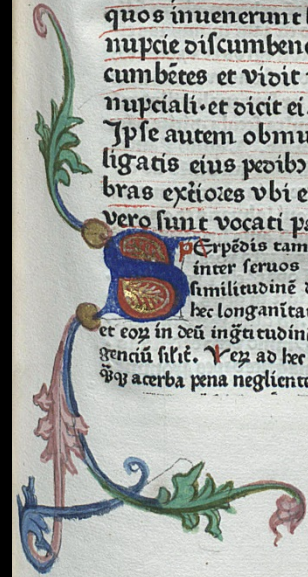 quos inuenerunt
nupcie discumben
cumbētes et vidit
nupciali·et dicit ei
Ipse autem obmu
ligatis eius pedibꝫ
bras exteriores vbi e
vero sunt vocati
SUperpēdis tam
inter seruos
similitudinē
hec longanita
et eoꝝ in deū
genciū
acerba pena negliente